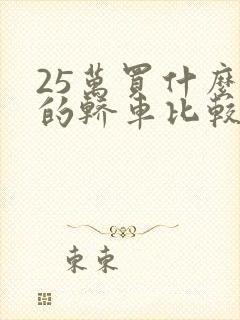 25萬買什麼
的轎車比較
東東